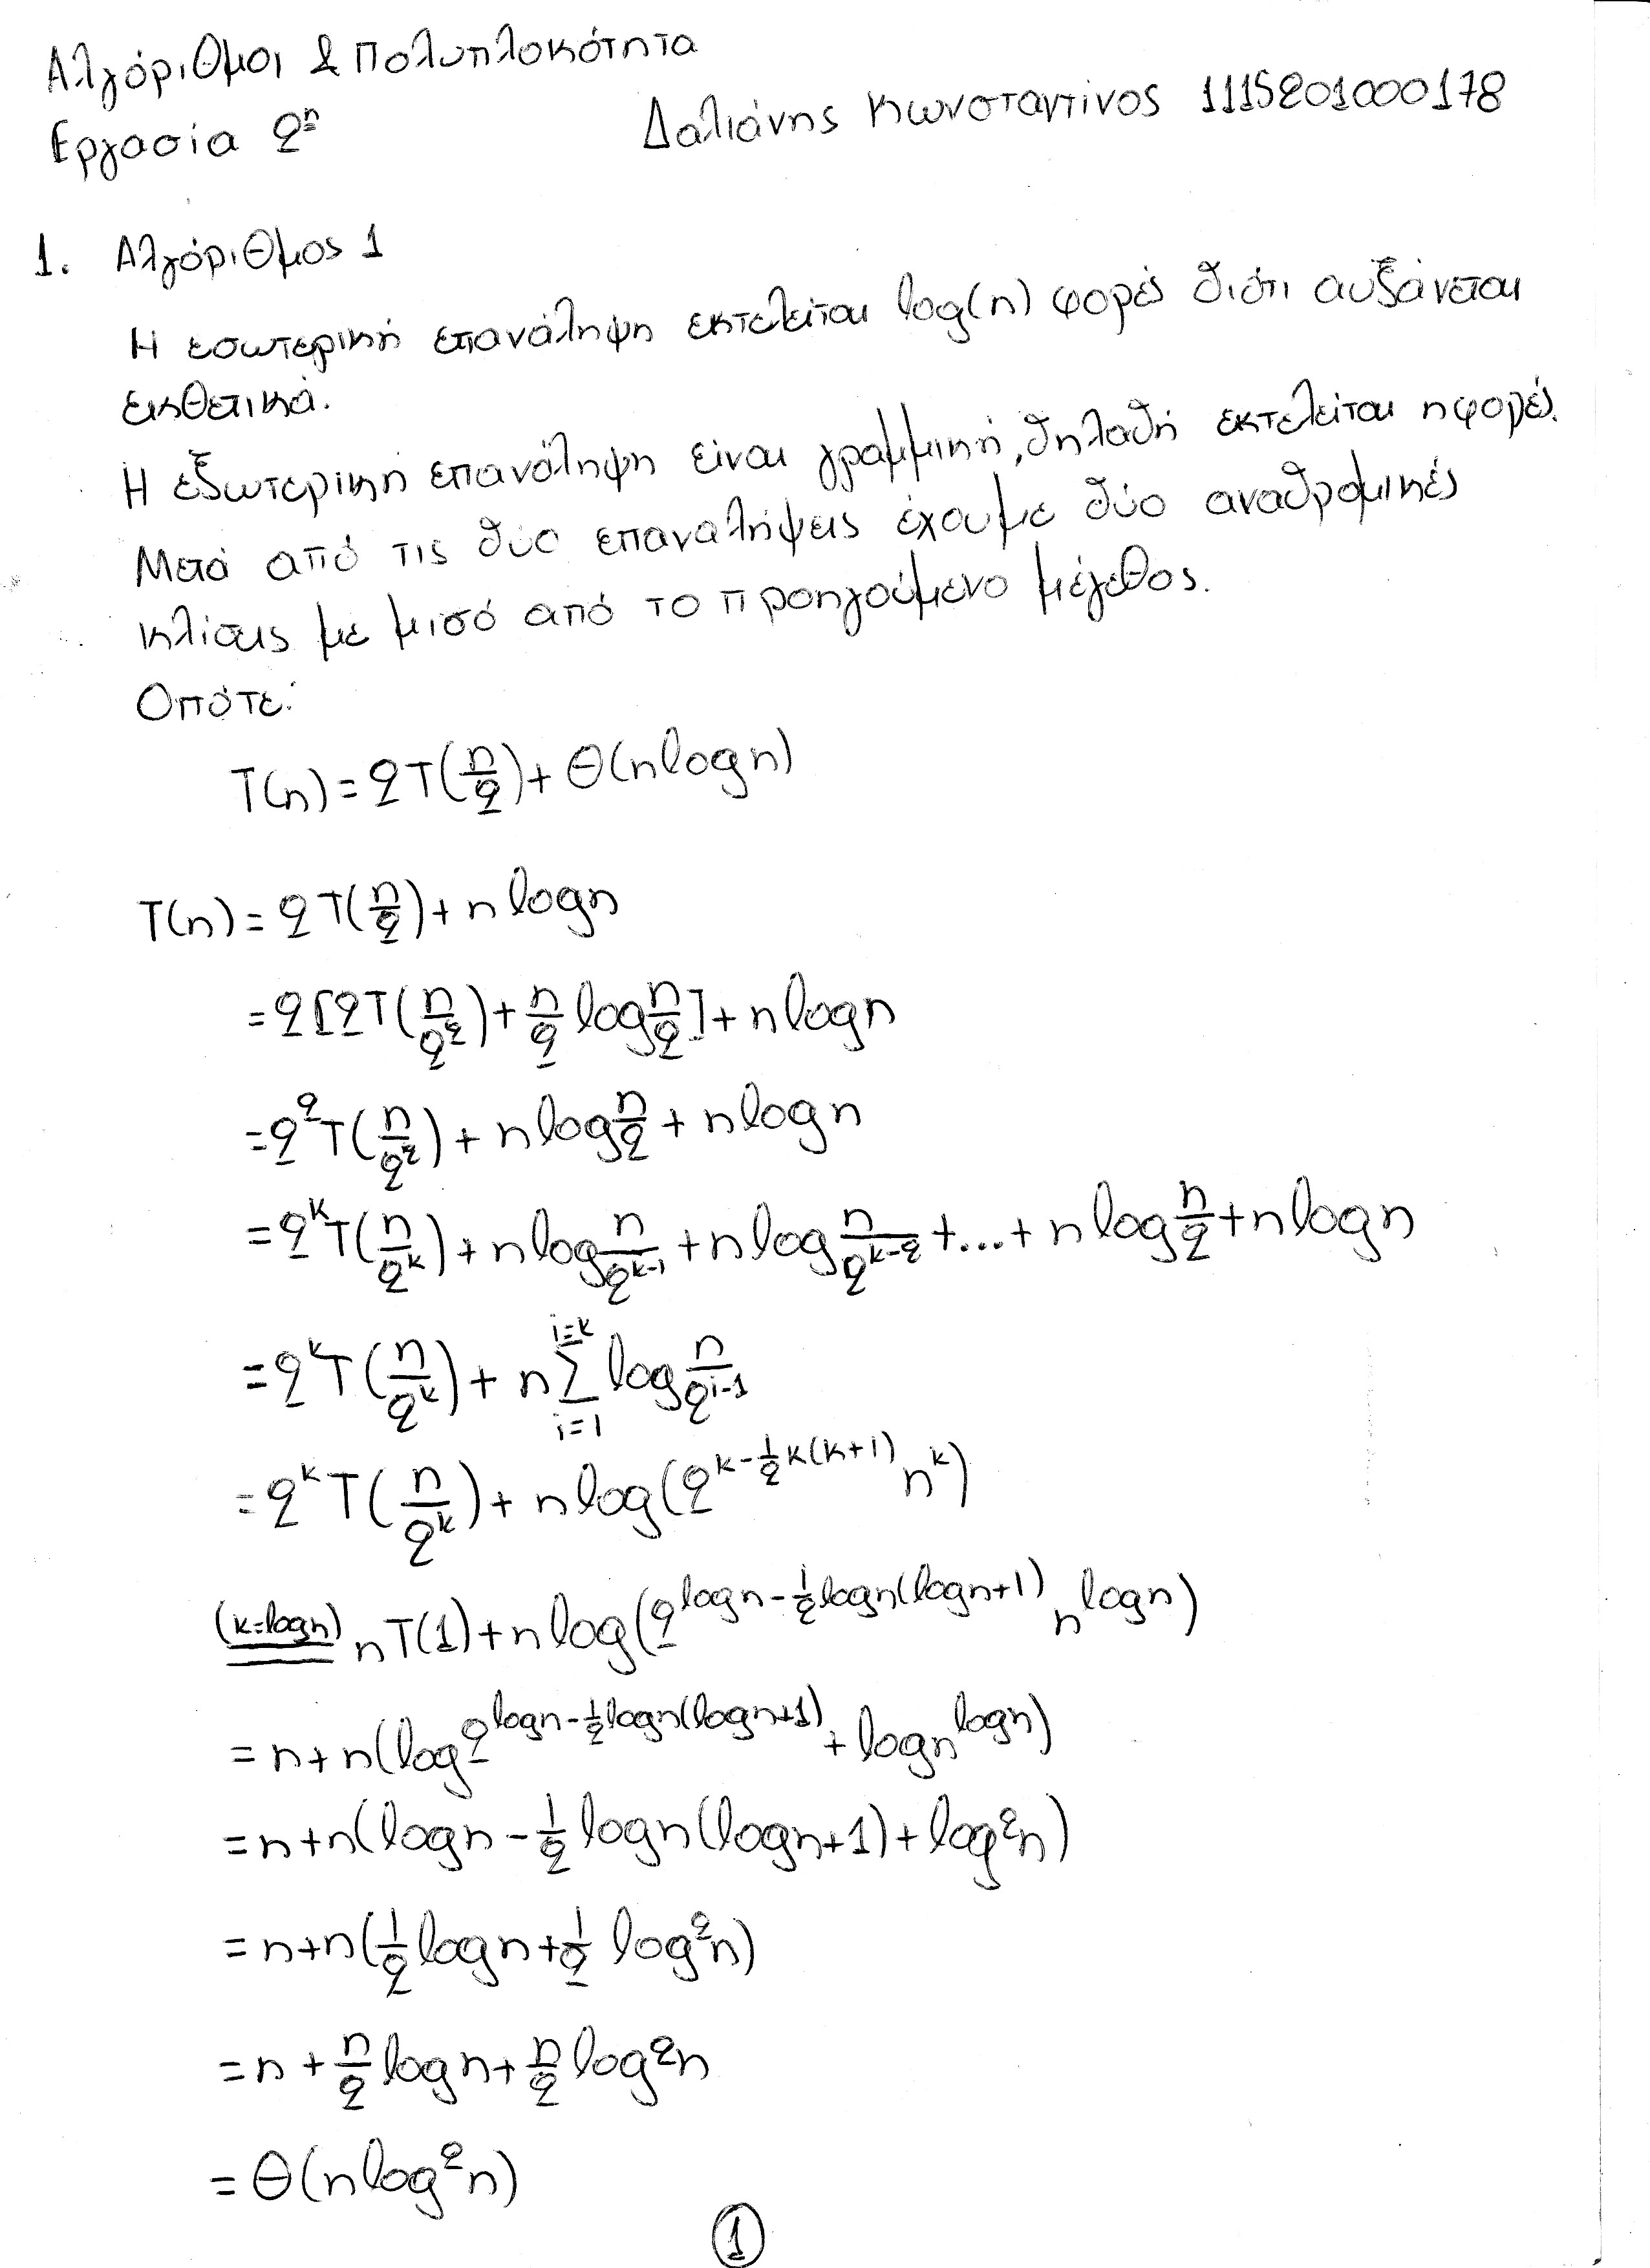 Αλγόριθμοι & Πολυπλοκότητα
Εργασία 2η Δαλιάνης Κωνσταντίνος 1115201000178
1. Αλγόριθμος 1
Η εσωτερική επανάληψη εκτελείται log(n) φορές διότι αυξάνεται
εκθετικά.
Η εξωτερική επανάληψη είναι γραμμική, δηλαδή εκτελείται n φορές.
Μετά από τις δύο επαναλήψεις έχουμε δύο αναδρομικές
κλίσεις με μισό από το προηγούμενο μέγεθος.
Οπότε:
T(n) = 2T(n/2) + Θ(nlogn)
T(n) = 2T(n/2) + nlogn
= 2[2T(n/2²) + n/2 log n/2] + nlogn
= 2²T(n/2²) + nlog n/2 + nlogn
= 2^k T(n/2^k) + nlog n/2^(k-1) + nlog n/2^(k-2) + ... + nlog n/2 + nlogn
= 2^k T(n/2^k) + n Σ_{i=1}^{i=k} log n/2^(i-1)
= 2^k T(n/2^k) + nlog(2^(k-½k(k+1)) n^k)
(k=logn) nT(1) + nlog(2^(logn-½logn(logn+1)) n^logn)
= n+n(log2^(logn-½logn(logn+1)) + logn^logn)
= n+n(logn - ½logn(logn+1) + log²n)
= n+n(½logn + ½log²n)
= n + n/2 logn + n/2 log²n
= Θ(nlog²n)
1